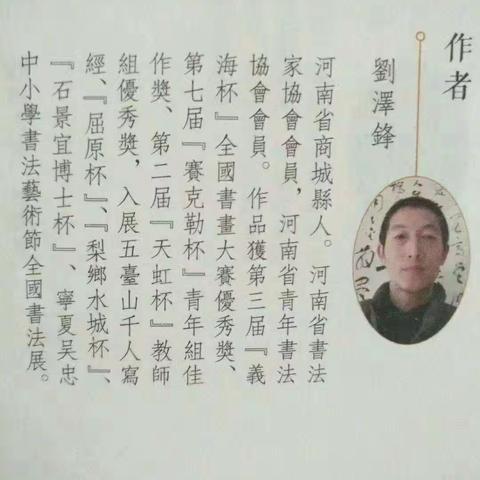 作者
劉澤鋒
河南省商城縣人。河南省書法
家協會會員，河南省青年書法
協會會員。作品獲第三届『義
海杯』全國書畫大賽優秀獎、
第七届『賽克勒杯』青年組佳
作獎、第二届『天虹杯』教師
組優秀獎，入展五臺山千人寫
經、『屈原杯』、『梨鄉水城杯』、
『石景宜博士杯』、寧夏吴忠
中小學書法藝術節全國書法展。